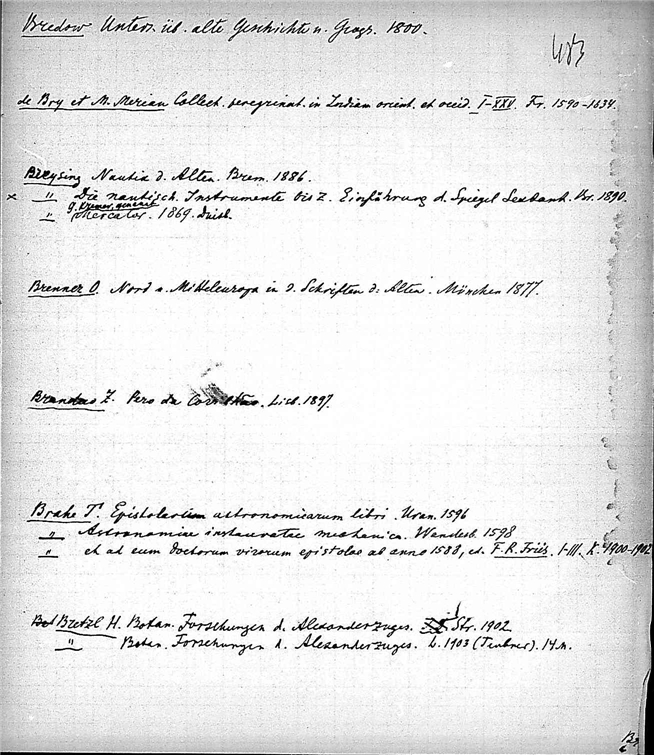 Bredow Unters. üb. alte Geschichte u. Geogr. 1800.
483
de Bry et M. Merian Collect. peregrinat. in Indiam orient. et occid. I-XXV. Fr. 1590-1634.
Breysing Nautik d. Alten. Brem. 1886.
× " Die nautisch. Instrumente bis z. Einführung d. Spiegel Sextant. Br. 1890.
G. Kremer, genannt
" Mercator. 1869. Duisb.
Brenner O. Nord u. Mitteleuropa in d. Schriften d. Alten. München 1877.
Z. Pero da Lisb. 1897.
Brahe T. Epistolarum astronomicarum libri. Uran. 1596
" Astronomiae instauratae mechanica. Wandesb. 1598
" et ad eum doctorum virorum epistolae ab anno 1588, ed. F. R. Friis. I-III. K. 1900-1902
Bretzl H. Botan. Forschungen d. Alexanderzuges. Str. 1902
" Botan. Forschungen d. Alexanderzuges. L. 1903 (Teubner). 14 M.